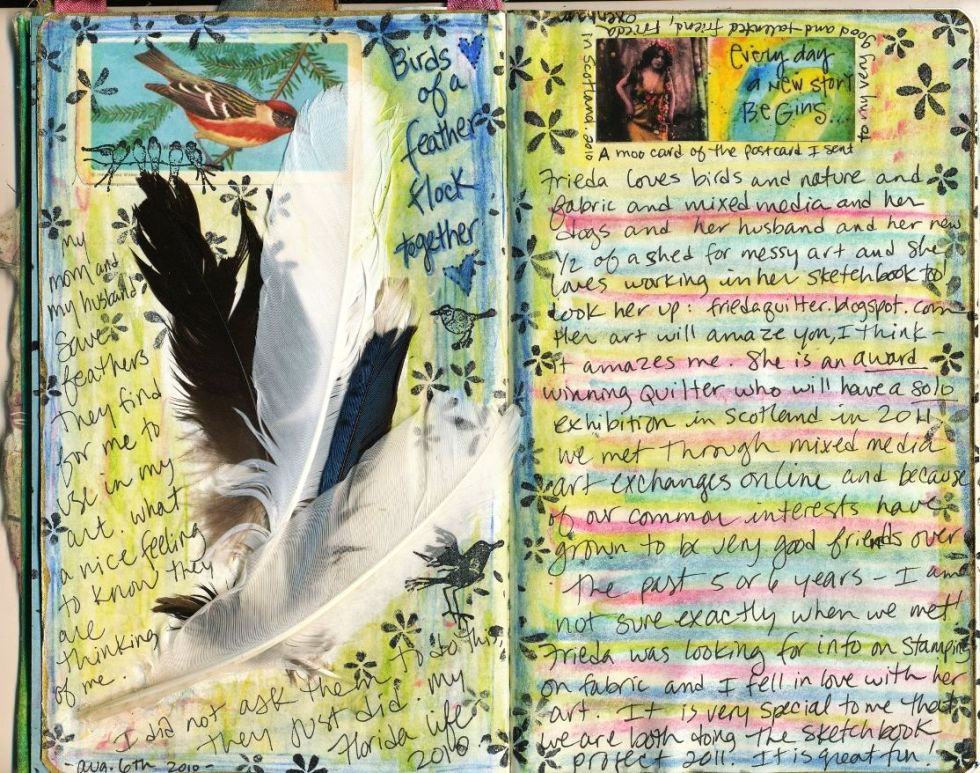 Birds
of a
feather
Flock
together
my
mom and
my husband
Save
feathers
they find
for me to
use in my
art. what
a nice feeling
to know they
are
thinking
of me.
I did not ask them to do this,
they just did. my
Florida life
2010.
- aug. 6th 2010 -
every day
a new story
Begins...
A moo card of the postcard I sent
to my very good and talented friend, Frieda
Oxenham
in Scotland. 2010
Frieda loves birds and nature and
fabric and mixed media and her
dogs and her husband and her new
1/2 of a shed for messy art and she
loves working in her sketchbook too
Look her up: friedaquilter.blogspot.com
Her art will amaze you, I think -
it amazes me. She is an award
winning Quilter who will have a solo
exhibition in Scotland in 2011.
we met through mixed media
art exchanges online and because
of our common interests have
grown to be very good friends over
the past 5 or 6 years - I am
not sure exactly when we met!
Frieda was looking for info on stamping
on fabric and I fell in love with her
art. It is very special to me that
we are both doing the sketchbook
project 2011. It is great fun!